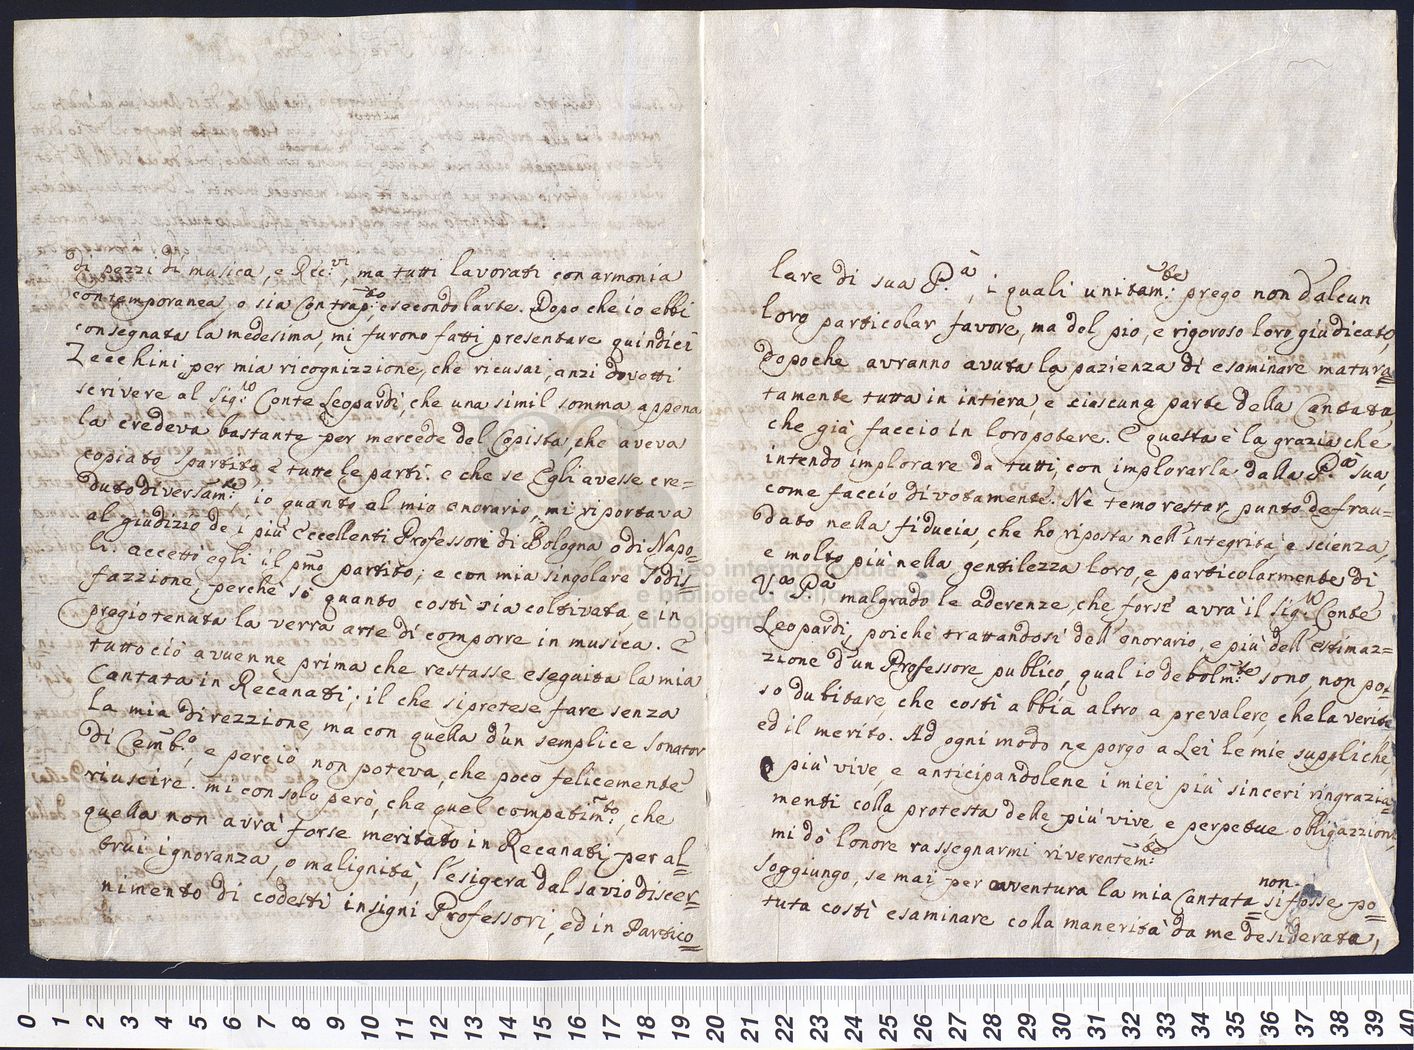 di pezzi di musica, e Rec:vi, ma tutti lavorati con armonia
contemporanea, o sia Contrap:to secondo l'arte. Dopo che io ebbi
consegnata la medesima, mi furono fatti presentare quindici
Zecchini per mia ricognizzione, che ricusai, anzi dovetti
scrivere al Sig:re Conte Leopardi, che una simil somma appena
la credeva bastante per mercede del Copista, che aveva
copiato spartito, e tutte le parti. e che se Egli avesse cre=
duto diversam:te io quanto al mio onorario mi riportava
al giudizio de i più Eccellenti Professori di Bologna o di Napo=
li. accettò egli il pmo partito; e con mia singolare sodis
fazzione, perchè sò quanto costì sia coltivata, e in
pregio tenuta la verra arte di comporre in musica. E
tutto ciò avuenne prima che restasse eseguita la mia
Cantata in Recanati; il che si pretese fare senza
la mia direzzione, ma con quella d'un semplice sonator
di Cemb:o, e perciò non poteva, che poco felicemente
riuscire. mi consolo però, che quel compatim:to, che
quella non avrà forse meritato in Recanati per al=
trui ignoranza, o malignità, l'esigerà dal savio discer=
nimento di codesti insigni Professori, ed in Partico=
lare di sua P:à, i quali unitam:te prego non d'alcun
loro particolar favore, ma del pio, e rigoroso loro giudicato,
dopoche avranno avuta la pazienza di esaminare matura=
tamente tutta in intiera, e ciascuna parte della Cantata,
che già faccio in loro potere. E questa è la grazia che
intendo implorare da tutti, con implorarla dalla P:tà sua,
come faccio divotamente. Ne temo restar punto defrau=
dato nella fiducia, che ho riposta nell'integrità e scienza,
e molto più nella gentilezza loro, e particolarmente di
V:ra P:à malgrado le aderenze che forse avrà il sig:re Conte
Leopardi, poichè trattandosi dell'onorario, e più dell'estimaz=
zione d'un Professore publico, qual io debolm:te sono, non pos=
so dubitare, che costì abbia altro a prevalere, che la verità
ed il merito. Ad ogni modo ne porgo a Lei le mie suppliche,
più vive, e anticipandolene i miei più sinceri ringrazia=
menti colla protesta delle più vive, e perpetue obligazzioni,
mi dò l'onore rassegnarmi riverentem:te
Soggiungo, se mai per avventura la mia Cantata non si fosse po=
tuta costì esaminare colla manerità da me desiderata,
museo internazionale
e biblioteca della musica
di bologna
0 1 2 3 4 5 6 7 8 9 10 11 12 13 14 15 16 17 18 19 20 21 22 23 24 25 26 27 28 29 30 31 32 33 34 35 36 37 38 39 40